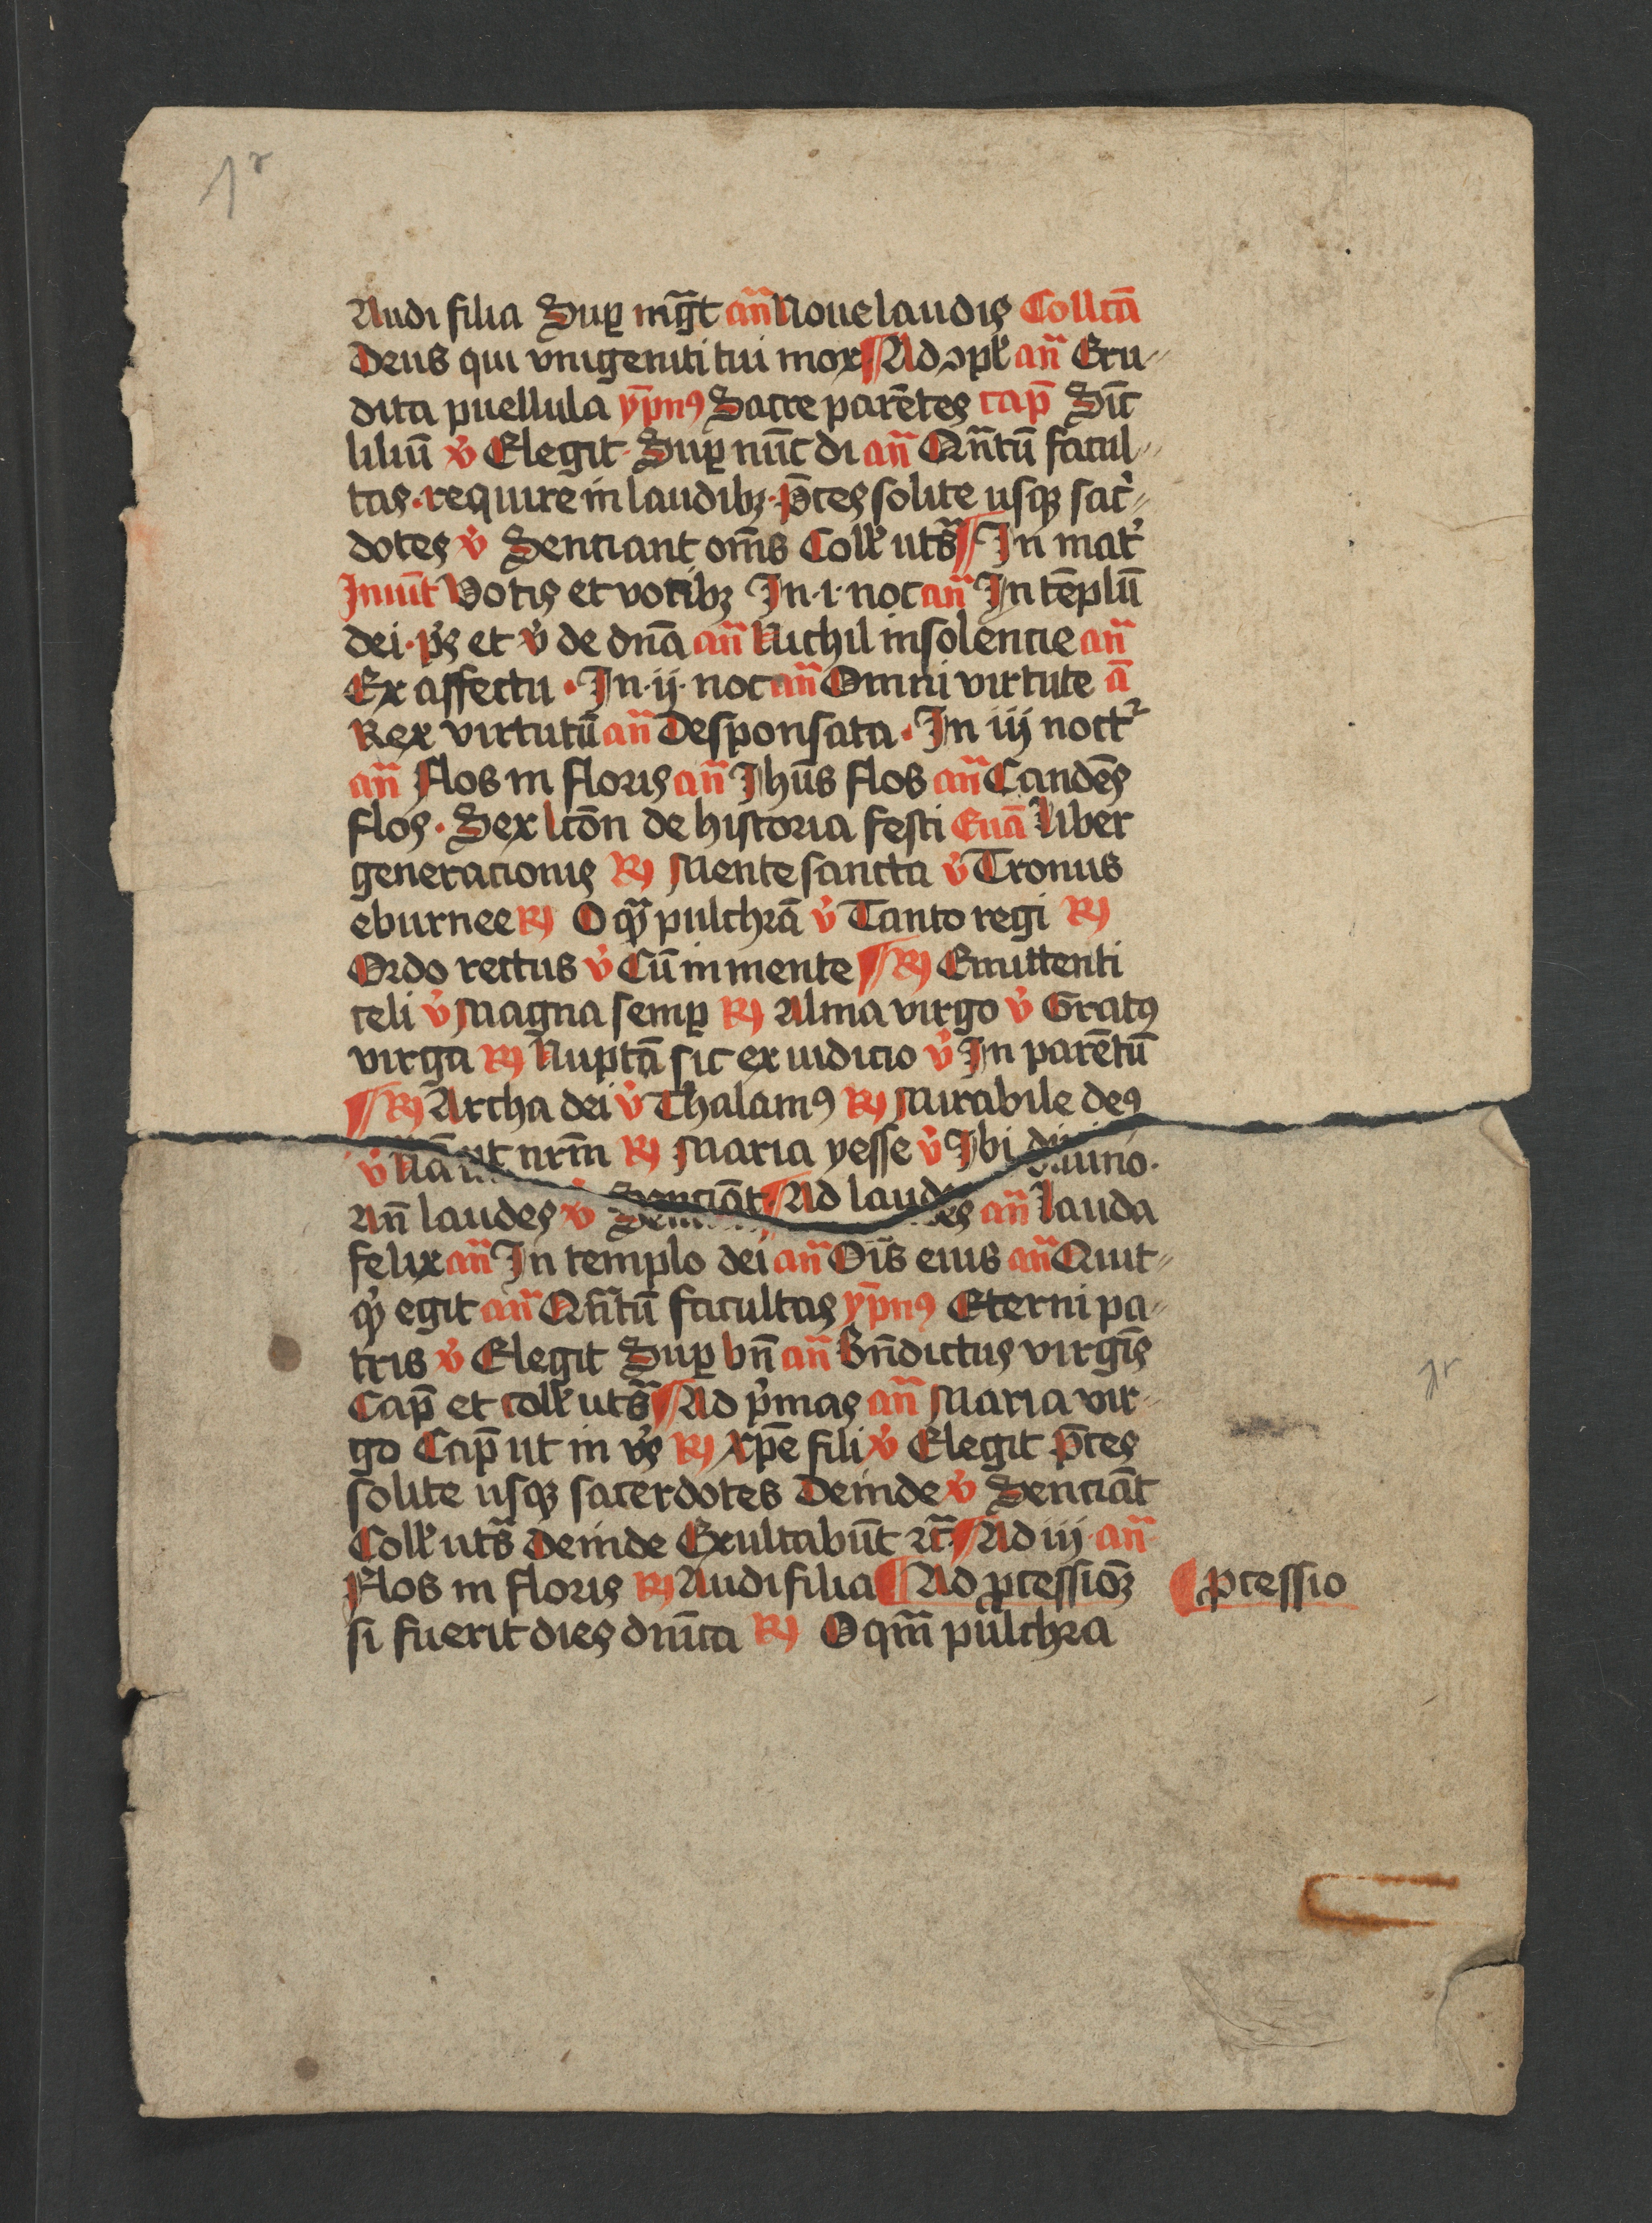 1r
Audi filia Sup mgt̄ an̄ Noue laudis Collc̄ā
Deus qui vnigeniti tui mox Ad ɔpl' an̄ Eru-
dita puellula ypn̄9 Sacre parētes cap̄ Sic̄
liliū v̊ Elegit Sup nūc di an̄ Qn̄tū facul-
tas. require in laudibȝ p̄ces solite usqȝ sac̓-
dotes v̊ Senciant om̄s Coll' uts̄ In mat̓
Inuit̄ Votis et vocibȝ In .i. noc an̄ In tēplū
dei. p̓s et v̊ de dn̄a an̄ Nichil insolencie an̄
Ex affectu . In .ij. noc an̄ Omni virtute ā
Rex virtutū an̄ Desponsata . In iij noct̓
an̄ Flos in floris an̄ Jhūs flos an̄ Candēs
flos . Sex lc̄on de historia festi Euā Liber
generacionis R) Mente sancta v̊ Tronus
eburnee R) O qȝ pulchrā v̊ Tanto regi R)
Ordo rectus v̊ Cū in mente R) Emittenti
celi v̊ Magna semp R) Alma virgo v̊ Grat9
virga R) Nuptā sic ex iudicio v̊ In parētū
R) Archa dei v̊ Thalam9 R) Mirabile de9
v̊ nr̄m R) Maria yesse v̊ Ibi diuino.
An̄ laudes v̊ Senciāt Ad laudes an̄ Lauda
felix an̄ In templo dei an̄ Oīs eius an̄ Quit-
q̓ egit an̄ Qn̄tū facultas ypn̄9 Eterni pa-
tris v̊ Elegit Sup bn̄ an̄ Bn̄dictus virgīs
Cap̄ et coll' uts̄ Ad p̓mas an̄ Maria vir-
go Cap̄ ut in v̓s R) Xpē fili v̊ Elegit p̄ces
solite usqȝ sacerdotes Deinde v̊ Senciāt
Coll' uts̄ Deinde Exultabūt rc̄ Ad iij. an̄
Flos in floris R) Audi filia Ad pcessioȝ
pcessio
si fuerit dies dn̄ica R) O qm̄ pulchra
1r